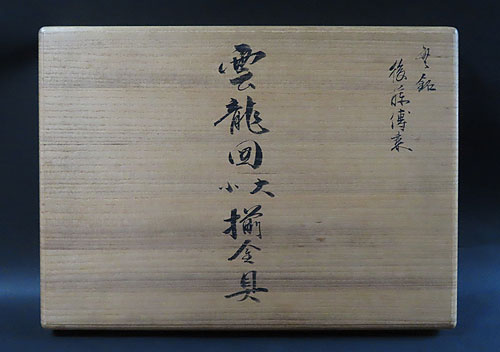 無銘
後藤傳来
雲龍図
大小
揃金具